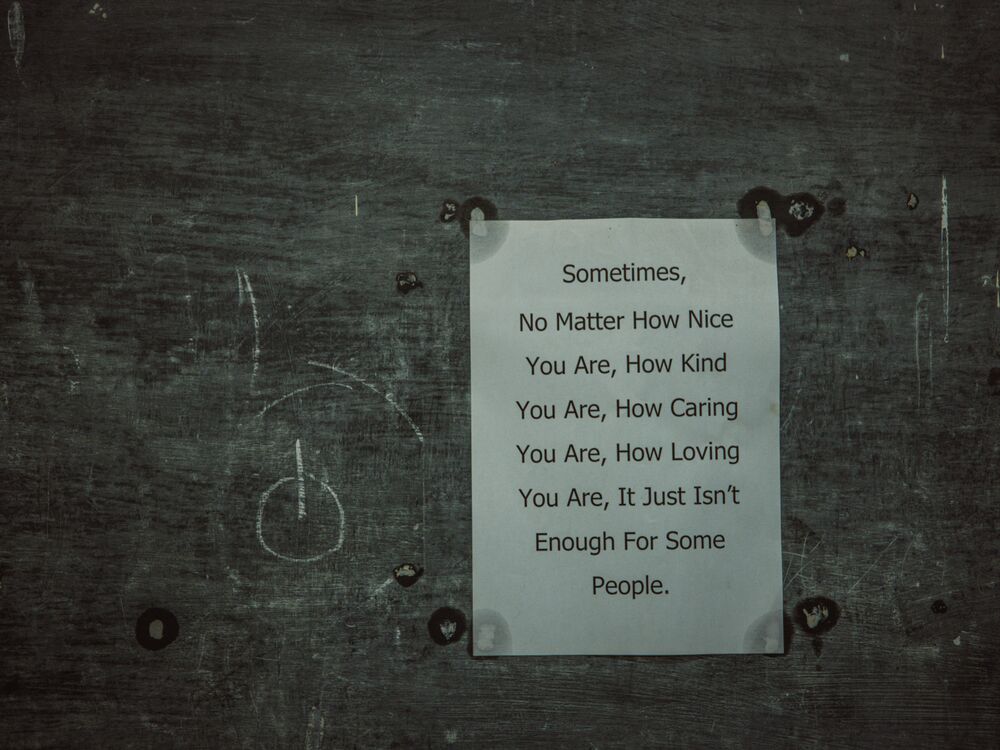 Sometimes,
No Matter How Nice
You Are, How Kind
You Are, How Caring
You Are, How Loving
You Are, It Just Isn’t
Enough For Some
People.